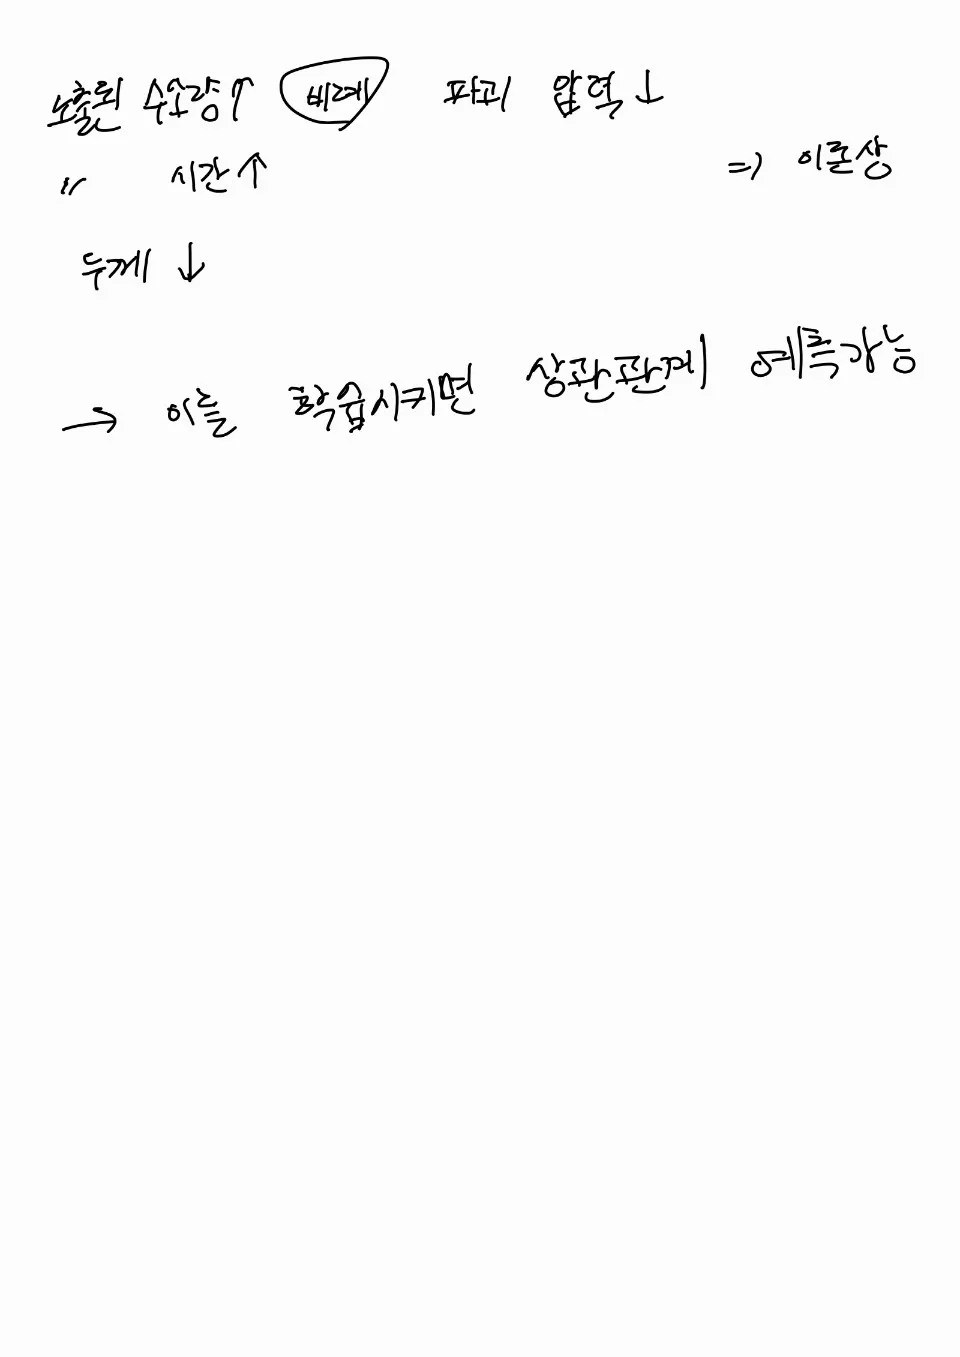 노출된 수소량↑ 비례 파괴 압력↓
〃 시간↑ => 이론상
두께↓
→ 이를 학습시키면 상관관계 예측가능